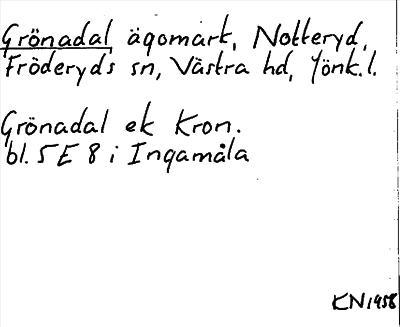 Grönadal ägomark, Notteryd,
Fröderyds sn, Västra hd, Jönk.l.
Grönadal ek Kron.
bl. 5 E 8 i Ingamåla
KN 1958